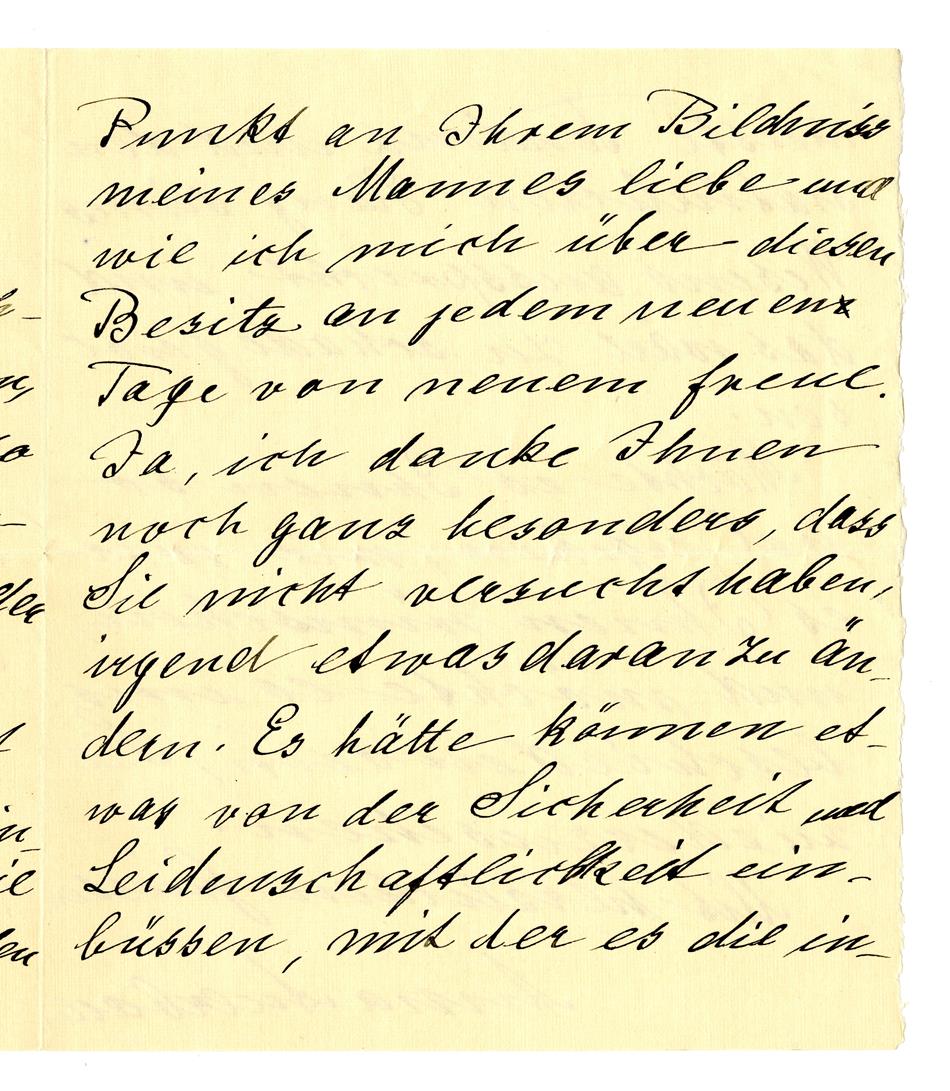 Punkt an Ihrem Bildniss
meines Mannes liebe und
wie ich mich über diesen
Besitz an jedem neuen
Tage von neuem freue.
Ja, ich danke Ihnen
noch ganz besonders, dass
Sie nicht versucht haben,
irgend etwas daran zu än-
dern. Es hätte können et-
was von der Sicherheit und
Leidenschaftlichkeit ein-
büssen, mit der es die in-